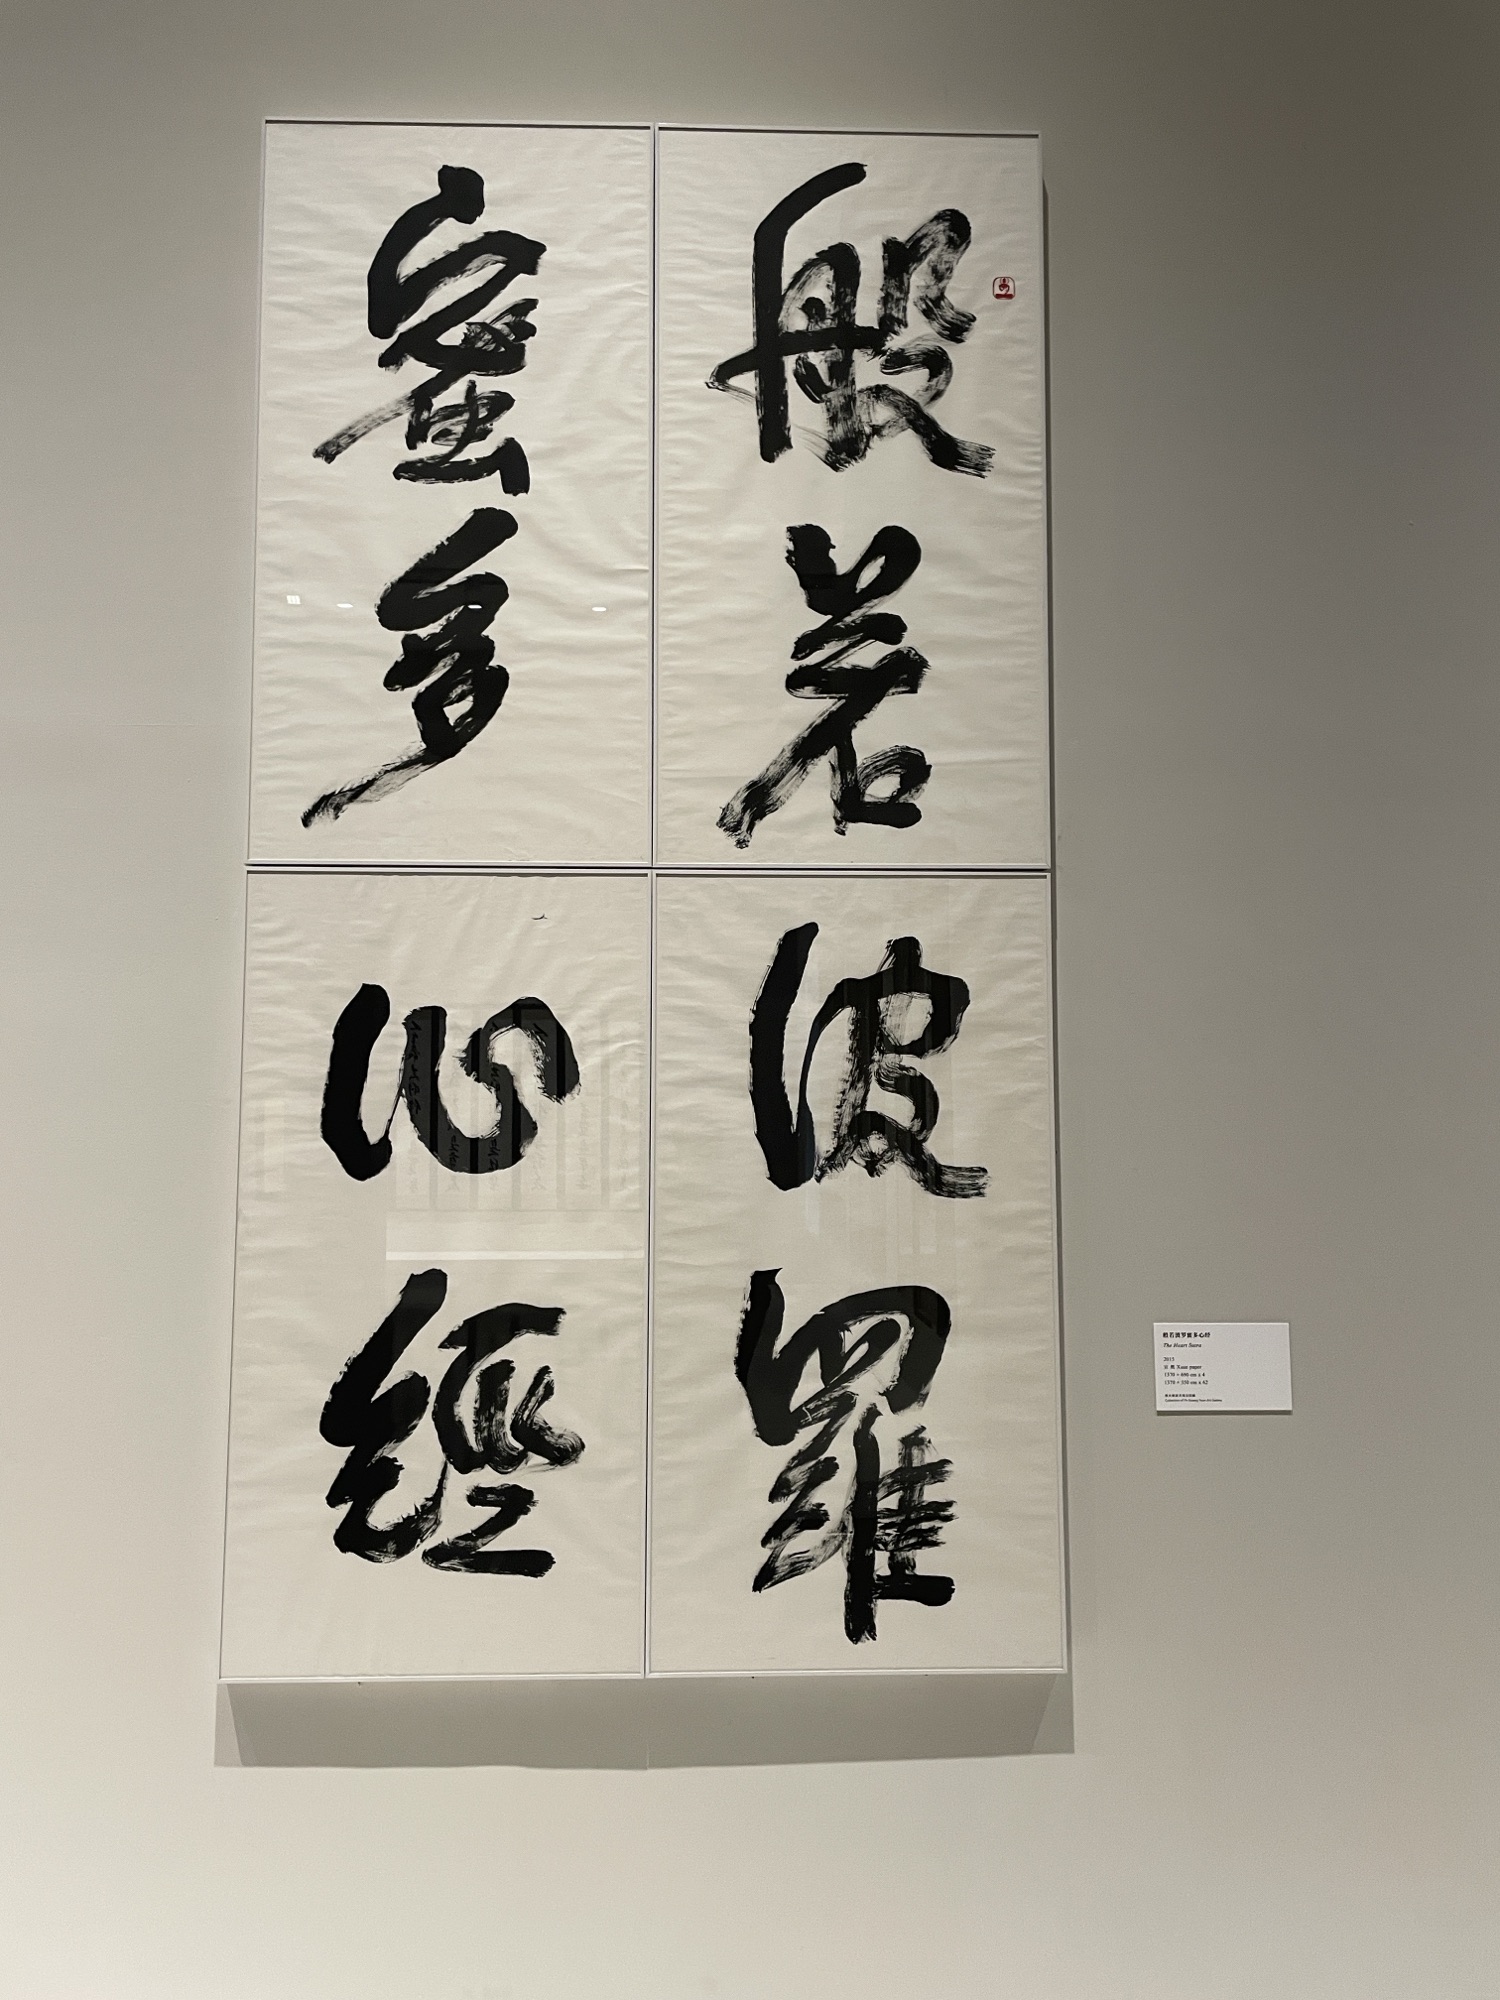 般若
波羅
蜜多
心經
般若波罗蜜多心经
The Heart Sutra
2015
宣纸 Xuan paper
1370 × 690 cm x 4
1370 × 350 cm x 62